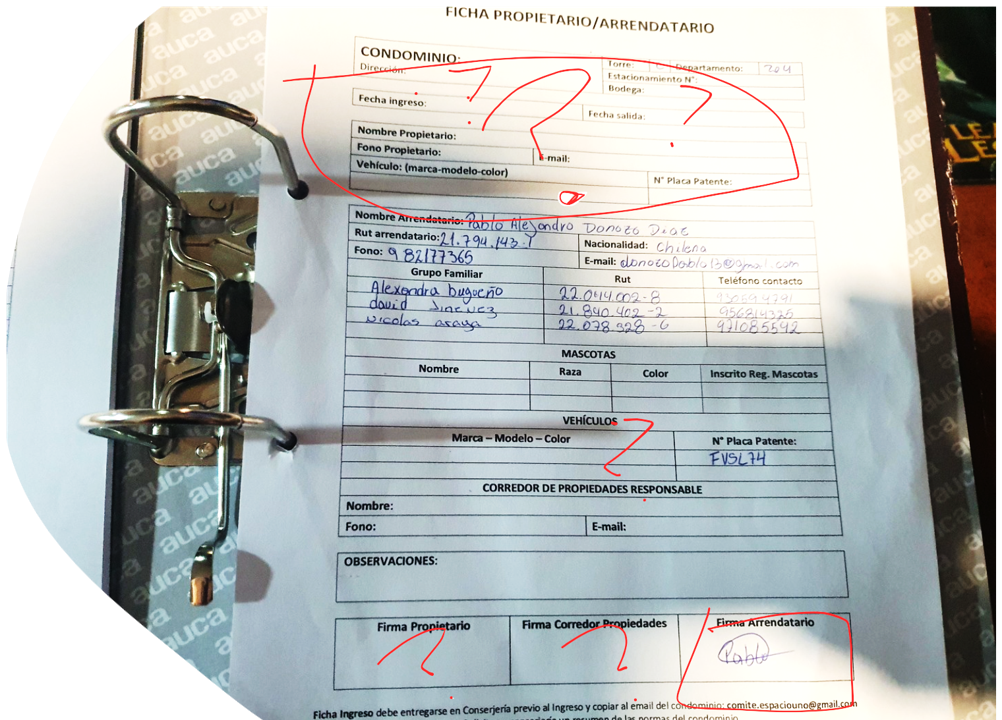 FICHA PROPIETARIO/ARRENDATARIO
CONDOMINIO:
Torre: Departamento: 204
Dirección:
Estacionamiento N°:
Bodega:
Fecha ingreso: Fecha salida:
Nombre Propietario:
Fono Propietario: E-mail:
Vehículo: (marca-modelo-color) N° Placa Patente:
Nombre Arrendatario: Pablo Alejandro Donozo Diaz
Rut arrendatario: 21.794.143-7 Nacionalidad: Chilena
Fono: 9 82177365 E-mail: donozoPablo13@gmail.com
Grupo Familiar Rut Teléfono contacto
Alexandra bugueño 22.044.002-8
david 21.840.402-2 956814325
nicolas araya 22.078.328-6 971085592
MASCOTAS
Nombre Raza Color Inscrito Reg. Mascotas
VEHÍCULOS
Marca – Modelo – Color N° Placa Patente:
FVSL74
CORREDOR DE PROPIEDADES RESPONSABLE
Nombre:
Fono: E-mail:
OBSERVACIONES:
Firma Propietario Firma Corredor Propiedades Firma Arrendatario
Pablo
Ficha Ingreso debe entregarse en Conserjería previo al Ingreso y copiar al email del condominio: comite.espaciouno@gmail.com
un resumen de las normas del condominio
auca